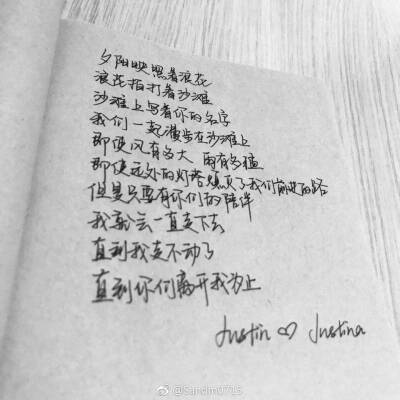 夕阳映照着浪花
浪花拍打着沙滩
沙滩上写着你的名字
我们一起漫步在沙滩上
即使风有多大 雨有多猛
即使远处的灯塔熄灭了我们前进的路
但是只要有你们的陪伴
我就会一直走下去
直到我走不动了
直到你们离开我为止
Justin ♡ Justina
@Sandm0715